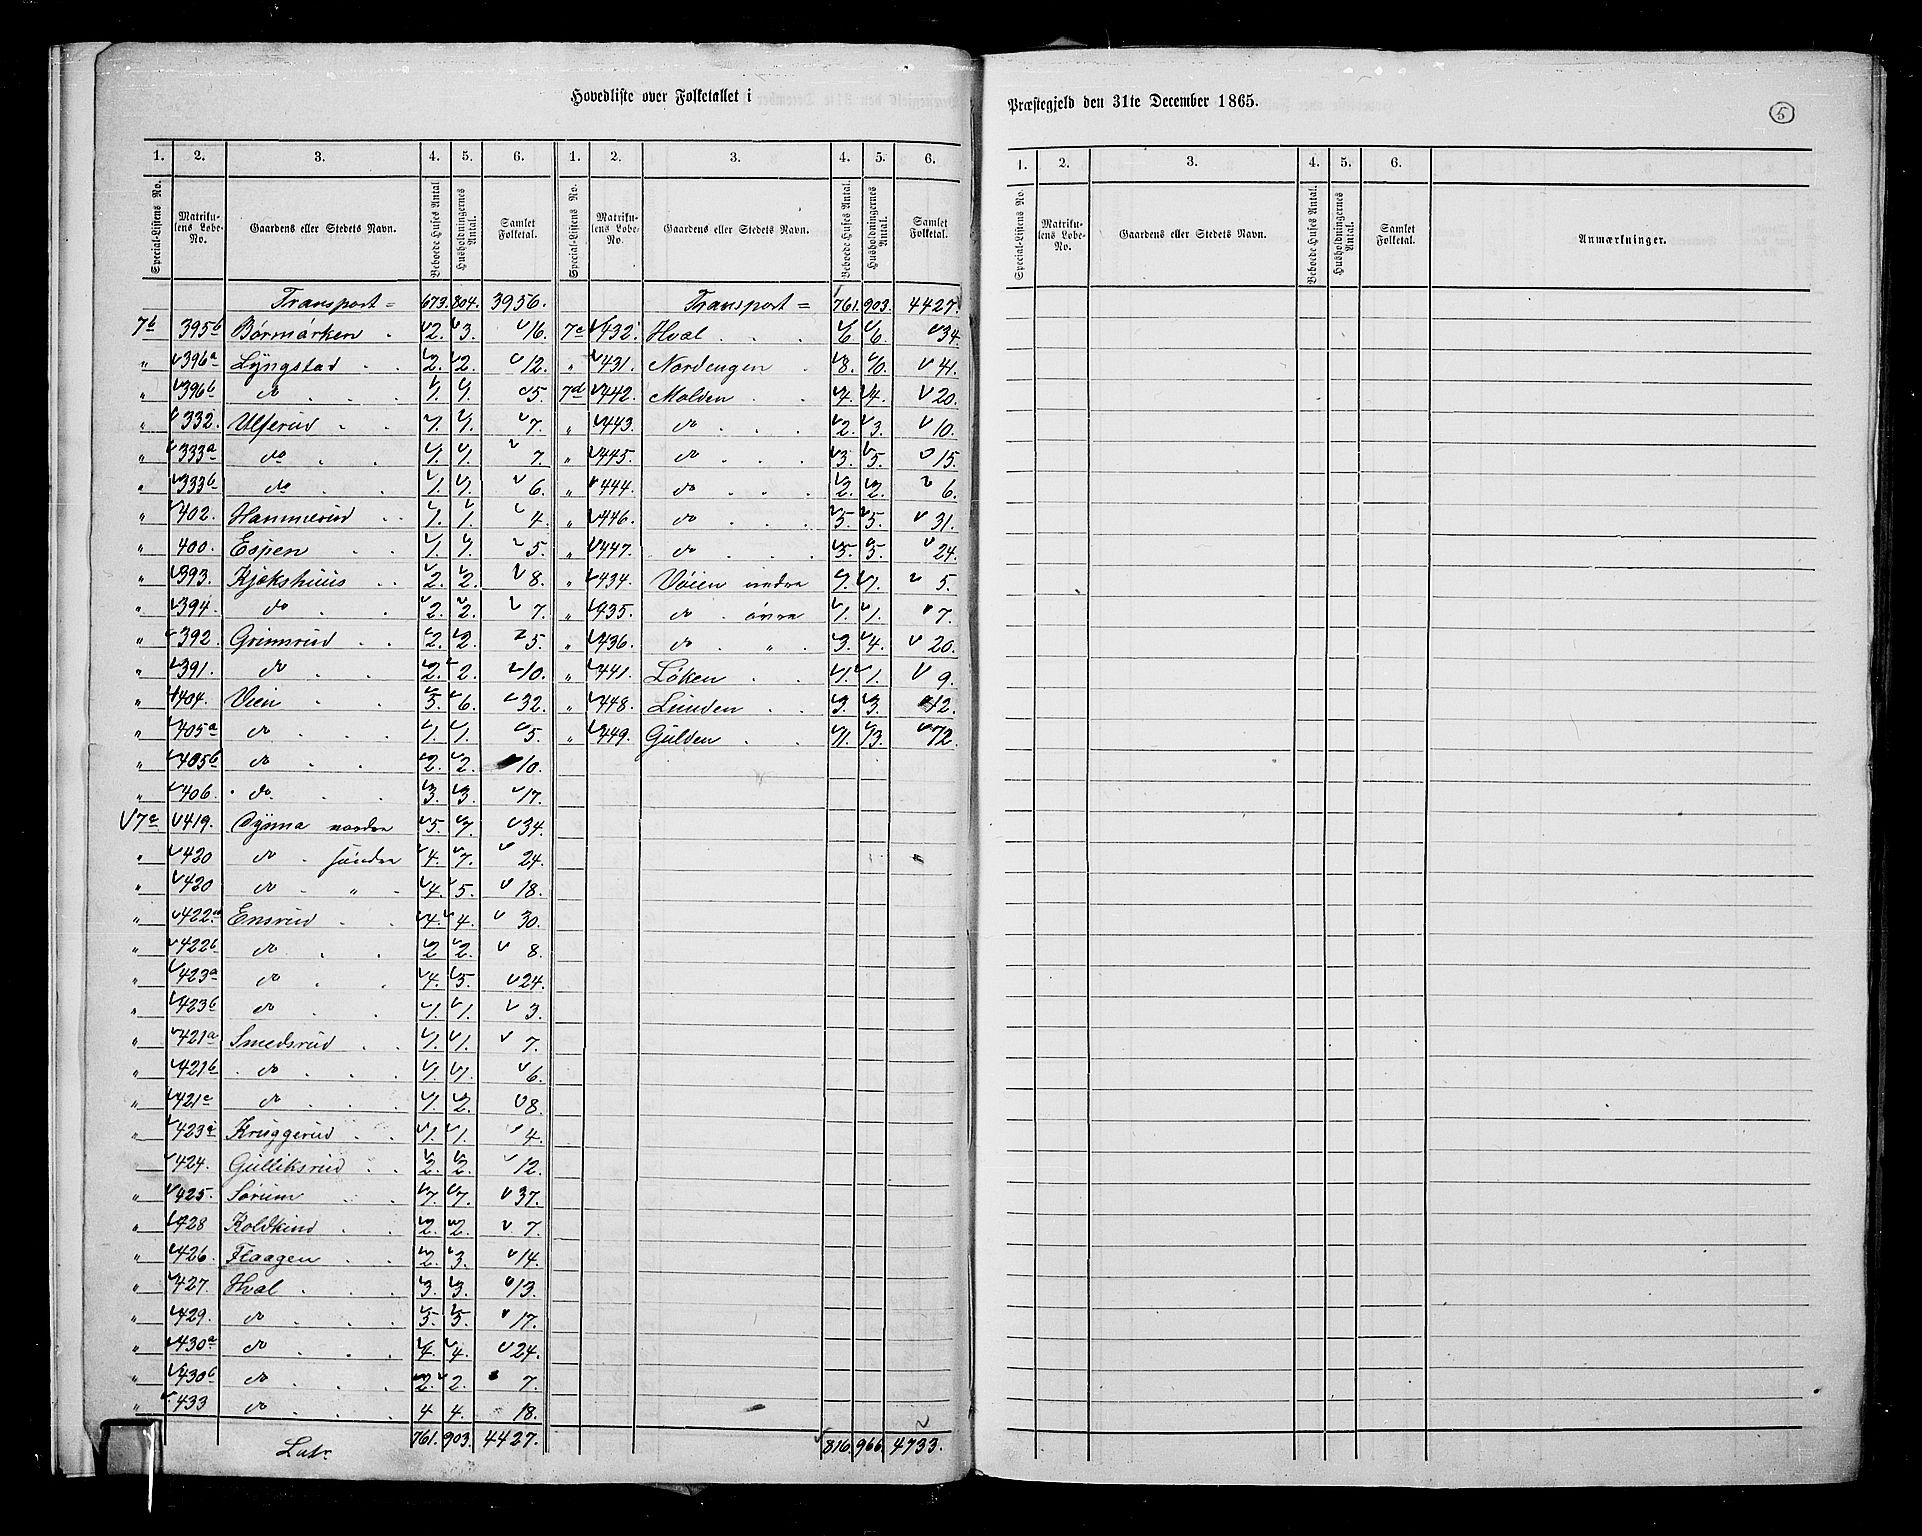 Hovedliste over Folketallet i
Præstegjeld den 31te December 1865.
5
1. 2. 3. 4. 5. 6. 1. 2. 3. 4. 5. 6.
Special-Listens No. Matrikulens Løbe-No. Gaardens eller Stedets Navn. Beboede Huses Antal Husholdningernes Antal. Samlet Folketal. Special-Listens No. Matrikulens Løbe-No. Gaardens eller Stedets Navn. Beboede Huses Antal. Husholdningernes Antal. Samlet Folketal.
Transport = 673. 804. 3956.
7b 395b Børmarken 2. 3. 16.
" 396a Lyngstad 2. 2. 12.
" 396b do 1. 1. 5.
" 332. Ulferud 1. 1. 7.
" 333a do 1. 1. 7.
" 333b do 1. 1. 6.
" 402. Hammerud 1. 1. 4.
" 400. Espen 1. 1. 5.
" 393. Kjøkshuus 2. 2. 8.
" 394. do 2. 2. 7.
" 392. Grimsrud 2. 2. 5.
" 391. do 2. 2. 10.
" 404. Vien 5. 6. 32.
" 405a do 1. 1. 5.
" 405b do 2. 2. 10.
" 406. do 3. 3. 17.
7c 419. Dynna nordre 5. 7. 34.
" 420 do søndre 4. 7. 24.
" 420 do " 4. 5. 18.
" 422a Ensrud 4. 4. 30.
" 422b do 2 2. 8.
" 423a do 4. 5. 24.
" 423b do 1. 1. 3.
" 421a Smedsrud 1. 1. 7.
" 421b do 1. 1. 6.
" 421c do 1. 2. 8.
" 423a Kruggerud 1. 1. 4.
" 424. Gulliksrud 2. 2. 12.
" 425. Sørum 7. 7. 37.
" 428 Koldkind 2. 2. 7.
" 426. Flaagen 2. 3. 14.
" 427. Hval 3. 3. 13.
" 429. do 5. 5. 17.
" 430a do 4. 4. 24.
" 430b do 2. 2. 7.
" 433 do 4 4. 18.
Lat. 761. 903. 4427.
Transport = 761. 903. 4427.
7c 432. Hval 6. 6. 34.
" 431. Nordengen 8. 10. 41.
7d 442. Molden 4. 4. 20.
" 443. do 2. 3. 10.
" 445. do 3. 5. 15.
" 444. do 2. 2. 6.
" 446. do 5. 5. 31.
" 447. do 5. 5. 24.
" 434. Vøien nedre 1. 1. 5.
" 435. do øvre 1. 1. 7.
" 436. do " 3. 4. 20.
" 441. Løken 1. 1. 9.
" 448. Lunden 3. 3. 12.
" 449. Gulden 11. 13. 72.
816. 966. 4733.
1. 2. 3. 4. 5. 6.
Special-Listens No. Matrikulens Løbe-No. Gaardens eller Stedets Navn. Beboede Huses Antal. Husholdningernes Antal. Samlet Folketal. Anmærkninger.